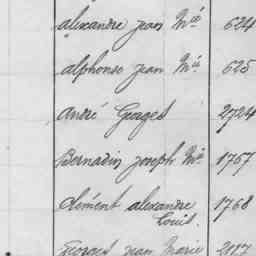 alexandre jean Mie 624
alphonse jean Mie 625
André Georges 2724
Bernadin joseph Mie 1757
Clément alexandre 1768
Louis.
Georges jean Marie 2017